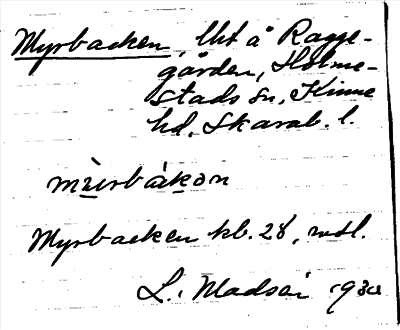 Myrbacken, lht å Ragge-
gården, Holme-
stads sn, Kinne
hd, Skarab. l.
Myrbacken kb. 28, rdsl.
L. Madsai 1930